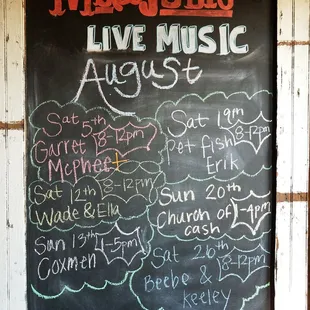 LIVE MUSIC
August
Sat 5th
8-12pm
Garret
McPhee
Sat 12th 8-12pm
Wade & Ella
Sun 13th 4-5pm
Coxmen
Sat 19th
8-12pm
Pet fish
Erik
Sun 20th
Church of 1-4pm
cash
Sat 26th
Beebe & 8-12pm
Keeley